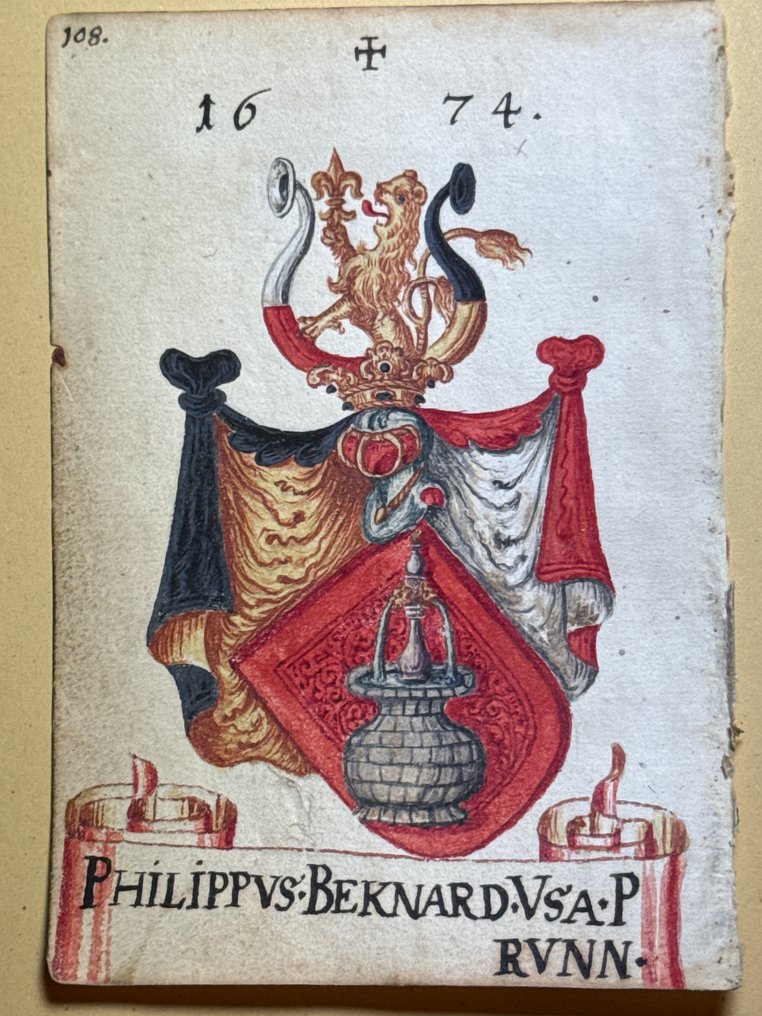 108.
1674.
PHiLiPPVS·BEKNARD·VSA·P
RVNN·